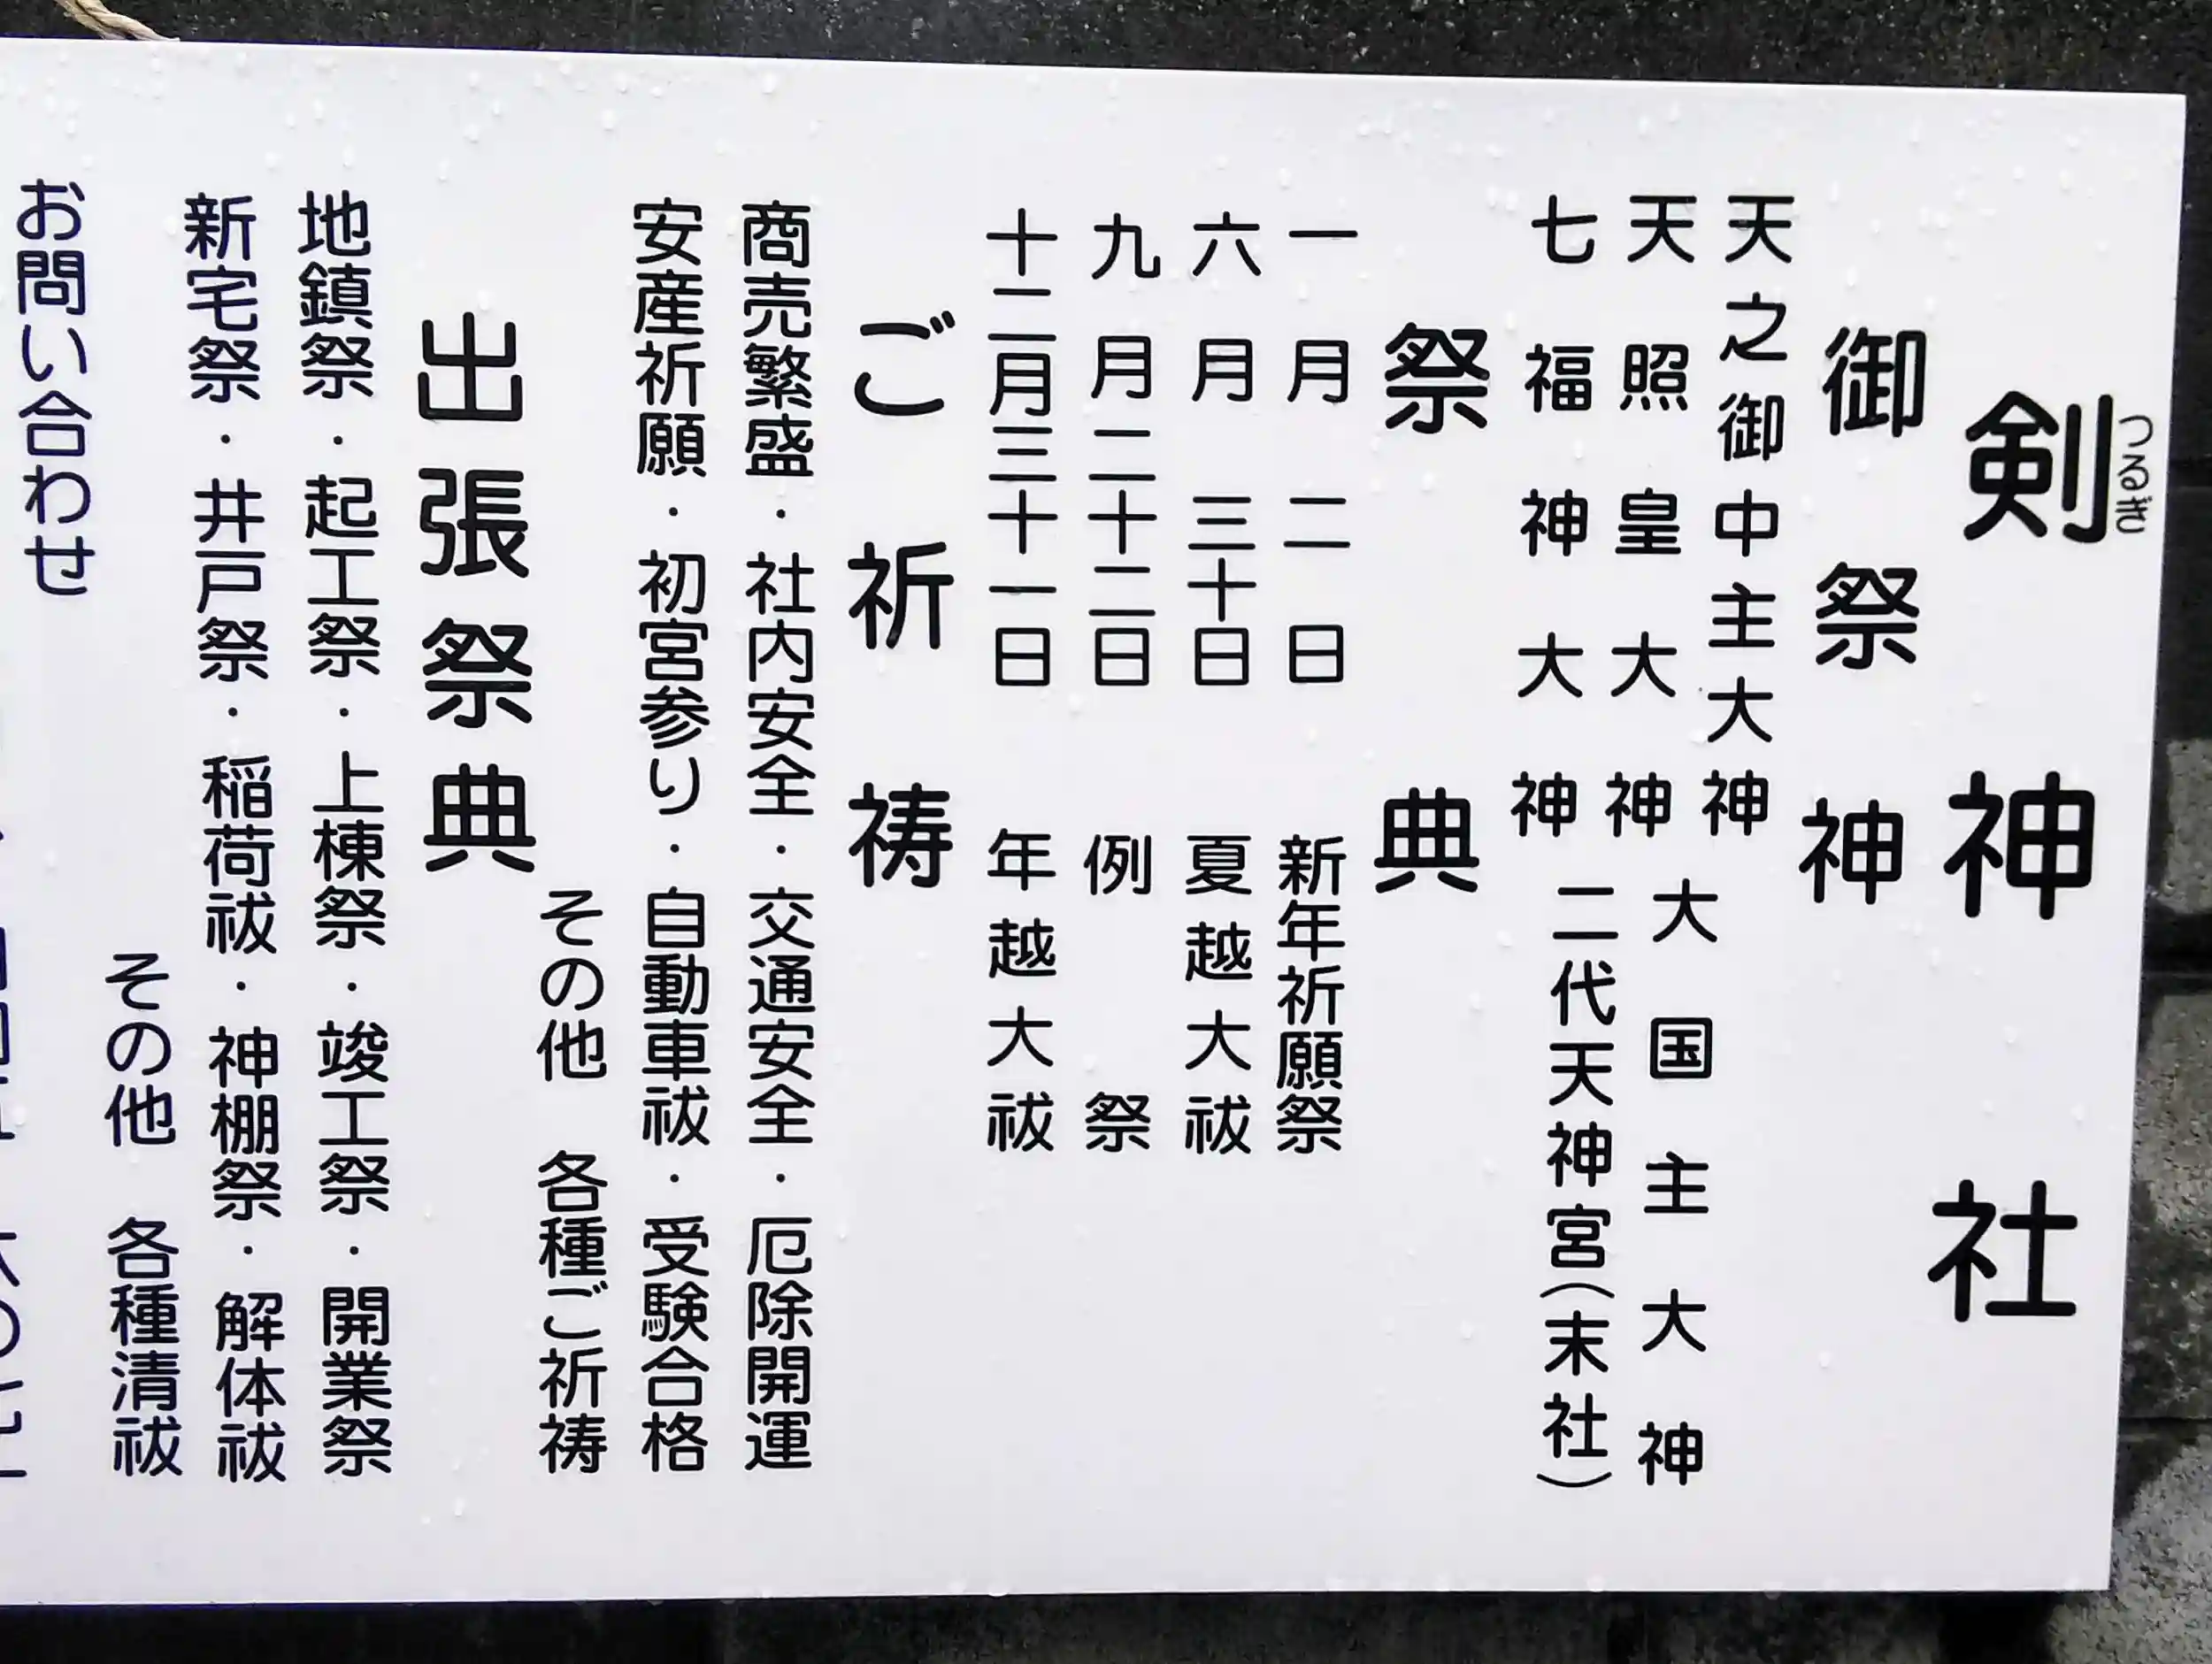 剣神社
つるぎ
御祭神
天之御中主大神
天照皇大神
七福神大神
大国主大神
二代天神宮(末社)
祭典
一月二日 新年祈願祭
六月三十日 夏越大祓
九月二十二日 例祭
十二月三十一日 年越大祓
ご祈祷
商売繁盛・社内安全・交通安全・厄除開運
安産祈願・初宮参り・自動車祓・受験合格
その他 各種ご祈祷
出張祭典
地鎮祭・起工祭・上棟祭・竣工祭・開業祭
新宅祭・井戸祭・稲荷祓・神棚祭・解体祓
その他 各種清祓
お問い合わせ